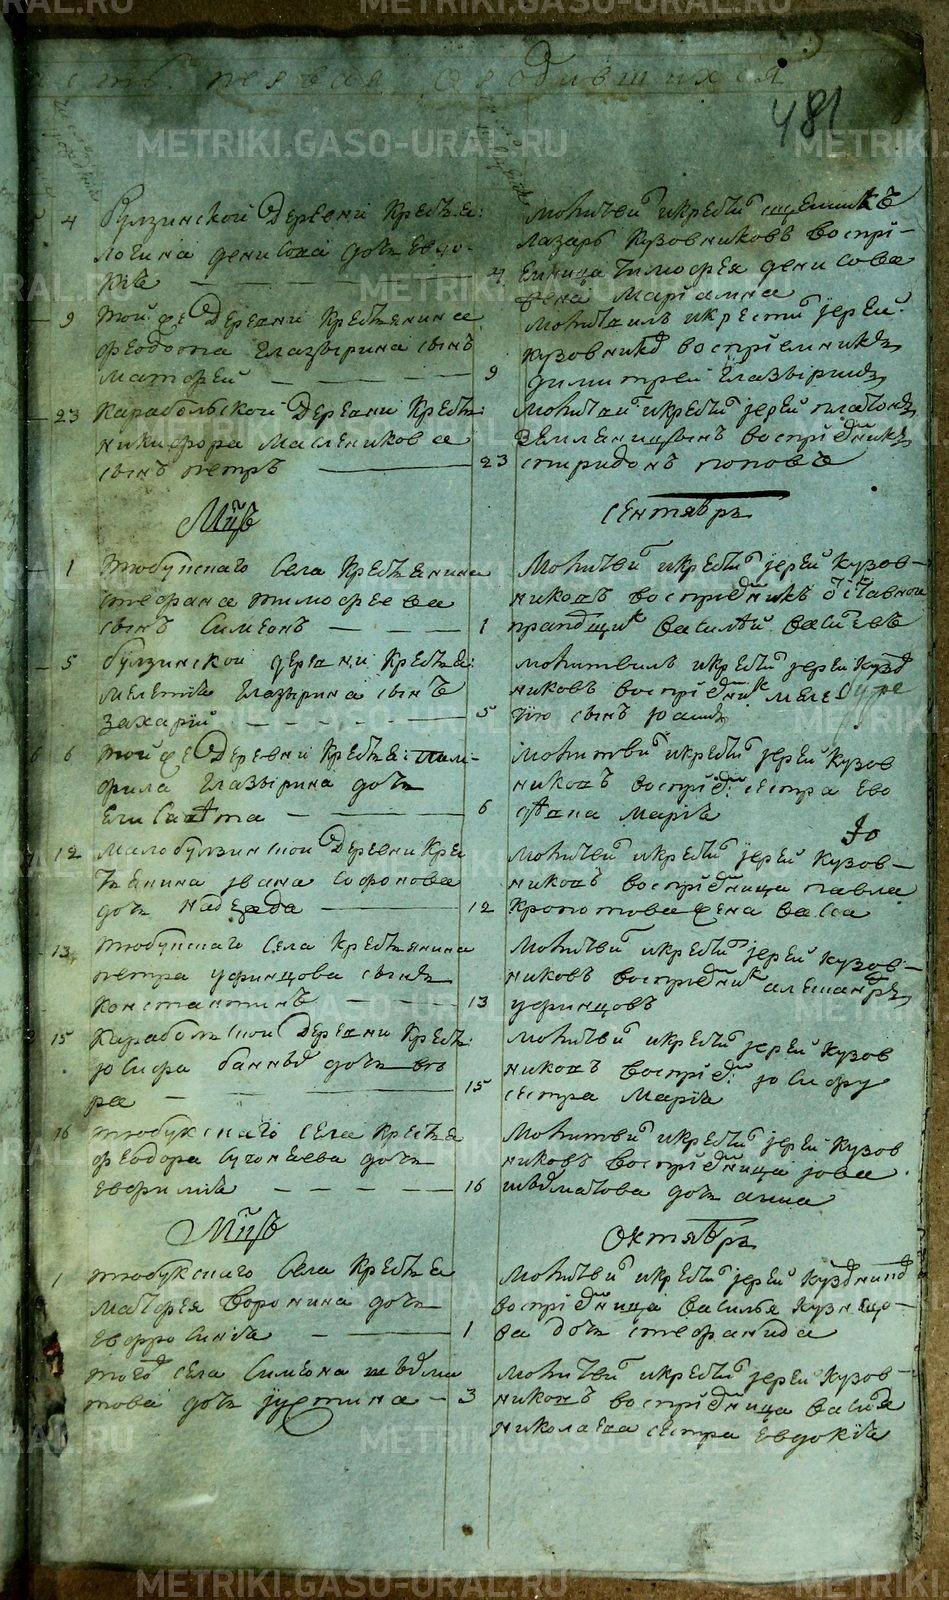 METRIKI.GASO-URAL.RU
часть первая о родившихся
481
4 Булзинской Деревни Крестья:
Логина денисова дочь Евдо-
кія
Молитвой и крести священникъ
Лазарь Кузовниковъ воспрі-
4 емница Тимофея денисова
жена Маріамна
9 той же Деревни Крестьянина
феодота Глазырина сынъ
Матфей
Молитвилъ и крести іерей
кузовнико воспріемникъ
9 димитрей Глазыринъ
23 Карабольской Деревни Кресть:
никифора Маслениковa
сынъ петръ 23
Молитвой и крести іерей платонъ
Земляницынъ воспріемникъ
спиридонъ поповъ
Мцъ
сентябрь
1 тюбукскаго Села Крестьянина
стефана тимофеева
сынъ Симеонъ 1
Молитвой и крести іерей Кузов-
никовъ воспріемникъ отставной
прапощикъ Василей Васильевъ
5 булзинской деревни Крестья:
мелетія Глазырина сынъ
Захарій 5
молитвилъ и крести іерей Кузо
никовъ воспріемникъ меле
тію сынъ іоаннъ
6 6 той же Деревни Крестья:
фила Глазырина дочь
Елисавета 6
Молитвой и крести іерей Кузов
никовъ воспріем: сестра ево
Марія
12 Малобулзинской Деревни Крес
тьянина івана Софонова
дочь Надежда 12
Молитвой и крести іерей Кузов-
никовъ воспріемница павла
Кропотова жена Васса
13 тюбукскаго Села Крестьянина
петра уфинцова сынъ
Константинъ 13
Молитвой и крести іерей Кузов-
никовъ воспріемник александръ
уфинцовъ
15 Карабольской Деревни Кресть:
іосифа дочь
ра 15
Молитвой и крести іерей Кузов
никовъ воспріем: іосифу
сестра Марія
16 тюбукскаго села Крестья
феодора дочь
Евфимія 16
Молитвой и крести іерей Кузов
никовъ воспріемница іова
шеломатова дочь анна
Мцъ
Октябрь
1 тюбукскаго Села Крестья
Матфея Воронина дочь
Евфросинія 1
Молитвой и крести іерей Кузовнико
воспріемница Василья Кузнецо-
ва дочь стефанида
того села Симеона шелома
това дочь іустина 3
Молитвой и крести іерей Кузов-
никовъ воспріемница Василя
николаева сестра Евдокія